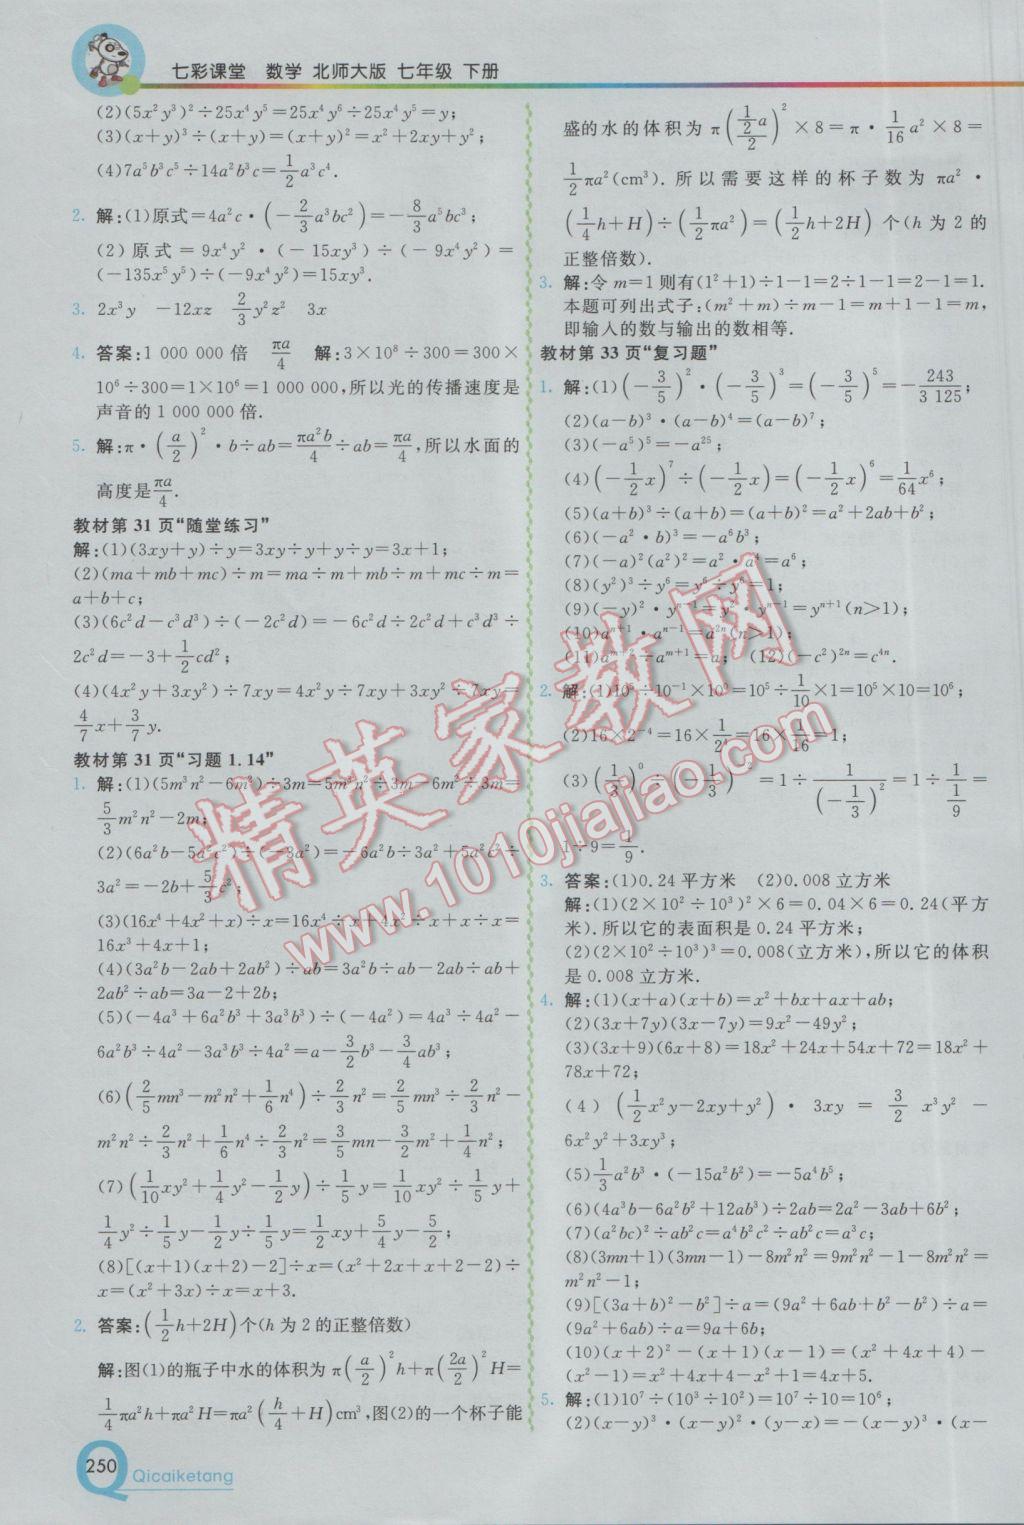 七彩课堂 数学 北师大版 七年级 下册
(2)(5x²y³)²÷25x⁴y⁵=25x⁴y⁶÷25x⁴y⁵=y;
(3)(x+y)³÷(x+y)=(x+y)²=x²+2xy+y²;
(4)7a⁵b³c⁵÷14a²b³c=1/2a³c⁴.
2. 解:(1)原式=4a²c·(-2/3a³bc²)=-8/3a⁵bc³;
(2)原式=9x⁴y²·(-15xy³)÷(-9x⁴y²)=
(-135x⁵y⁵)÷(-9x⁴y²)=15xy³.
3. 2x³y -12xz 2/3y²z² 3x
4. 答案:1 000 000倍 πa/4 解:3×10⁸÷300=300×
10⁶÷300=1×10⁶=1 000 000,所以光的传播速度是
声音的1 000 000倍.
5. 解:π·(a/2)²·b÷ab=πa²b/4÷ab=πa/4,所以水面的
高度是πa/4.
教材第31页“随堂练习”
解:(1)(3xy+y)÷y=3xy÷y+y÷y=3x+1;
(2)(ma+mb+mc)÷m=ma÷m+mb÷m+mc÷m=
a+b+c;
(3)(6c²d-c³d³)÷(-2c²d)=-6c²d÷2c²d+c³d³÷
2c²d=-3+1/2cd²;
(4)(4x²y+3xy²)÷7xy=4x²y÷7xy+3xy²÷7xy=
4/7x+3/7y.
教材第31页“习题1.14”
1. 解:(1)(5m³n²-6m²)÷3m=5m³n²÷3m-6m²÷3m=
5/3m²n²-2m;
(2)(6a²b-5a²c²)÷(-3a²)=-6a²b÷3a²+5a²c²÷
3a²=-2b+5/3c²;
(3)(16x⁴+4x²+x)÷x=16x⁴÷x+4x²÷x+x÷x=
16x³+4x+1;
(4)(3a²b-2ab+2ab²)÷ab=3a²b÷ab-2ab÷ab+
2ab²÷ab=3a-2+2b;
(5)(-4a³+6a²b³+3a³b³)÷(-4a²)=4a³÷4a²-
6a²b³÷4a²-3a³b³÷4a²=a-3/2b³-3/4ab³;
(6)(2/5mn³-m²n²+1/6n⁴)÷2/3n²=2/5mn³÷2/3n²-
m²n²÷2/3n²+1/6n⁴÷2/3n²=3/5mn-3/2m²+1/4n²;
(7)(1/10xy²+1/4y²-1/2y)÷1/5y=1/10xy²÷1/5y+
1/4y²÷1/5y-1/2y÷1/5y=1/2xy+5/4y-5/2;
(8)[(x+1)(x+2)-2]÷x=(x²+2x+x+2-2)÷
x=(x²+3x)÷x=x+3.
2. 答案:(1/2h+2H)个(h为2的正整倍数)
解:图(1)的瓶子中水的体积为π(a/2)²h+π(2a/2)²H=
1/4πa²h+πa²H=πa²(h/4+H)cm³,图(2)的一个杯子能
盛的水的体积为π(1/2a/2)²×8=π·1/16a²×8=
1/2πa²(cm³). 所以需要这样的杯子数为πa²·
(1/4h+H)÷(1/2πa²)=(1/2h+2H)个(h为2的
正整倍数).
3. 解:令m=1则有(1²+1)÷1-1=2÷1-1=2-1=1.
本题可列出式子:(m²+m)÷m-1=m+1-1=m,
即输入的数与输出的数相等.
教材第33页“复习题”
1. 解:(1)(-3/5)²·(-3/5)³=(-3/5)⁵=-243/3 125;
(2)(a-b)³·(a-b)⁴=(a-b)⁷;
(3)(-a⁵)⁵=-a²⁵;
(4)(-1/2x)⁷÷(-1/2x)=(-1/2x)⁶=1/64x⁶;
(5)(a+b)³÷(a+b)=(a+b)²=a²+2ab+b²;
(6)(-a²·b)³=-a⁶b³;
(7)(-a)²(a²)²=a²·a⁴=a⁶;
(8)(y²)³÷y⁶=y⁶÷y⁶=1;
(9)(-y)²·yⁿ⁻¹=y²·yⁿ⁻¹=yⁿ⁺¹(n>1);
(10)aⁿ⁺¹·aⁿ⁻¹=a²ⁿ(n>1);
(11)aᵐ⁺²÷aᵐ⁺¹=a; (12)(-c²)²ⁿ=c⁴ⁿ.
2. 解:(1)10⁵÷10⁻¹×10⁰=10⁵÷1/10×1=10⁵×10=10⁶;
(2)16×2⁻⁴=16×1/2⁴=16×1/16=1;
(3)(1/3)⁰÷(-1/3)⁻²=1÷1/(-1/3)²=1÷1/(1/9)=
1÷9=1/9.
3. 答案:(1)0.24平方米 (2)0.008立方米
解:(1)(2×10²÷10³)²×6=0.04×6=0.24(平方
米).所以它的表面积是0.24平方米;
(2)(2×10²÷10³)³=0.008(立方米),所以它的体积
是0.008立方米.
4. 解:(1)(x+a)(x+b)=x²+bx+ax+ab;
(2)(3x+7y)(3x-7y)=9x²-49y²;
(3)(3x+9)(6x+8)=18x²+24x+54x+72=18x²+
78x+72;
(4)(1/2x²y-2xy+y²)·3xy=3/2x³y²-
6x²y²+3xy³;
(5)1/3a²b³·(-15a²b²)=-5a⁴b⁵;
(6)(4a³b-6a²b²+12ab³)÷2ab=2a²-3ab+6b²;
(7)(a²bc)²÷ab²c=a⁴b²c²÷ab²c=a³c;
(8)(3mn+1)(3mn-1)-8m²n²=9m²n²-1-8m²n²=
m²n²-1;
(9)[(3a+b)²-b²]÷a=(9a²+6ab+b²-b²)÷a=
(9a²+6ab)÷a=9a+6b;
(10)(x+2)²-(x+1)(x-1)=(x²+4x+4)-
(x²-1)=x²+4x+4-x²+1=4x+5.
5. 解:(1)10⁷÷(10³÷10²)=10⁷÷10=10⁶;
(2)(x-y)³·(x-y)²·(y-x)=-(x-y)³·(x-
精英家教网
www.1010jiajiao.com
250
Qicaiketang